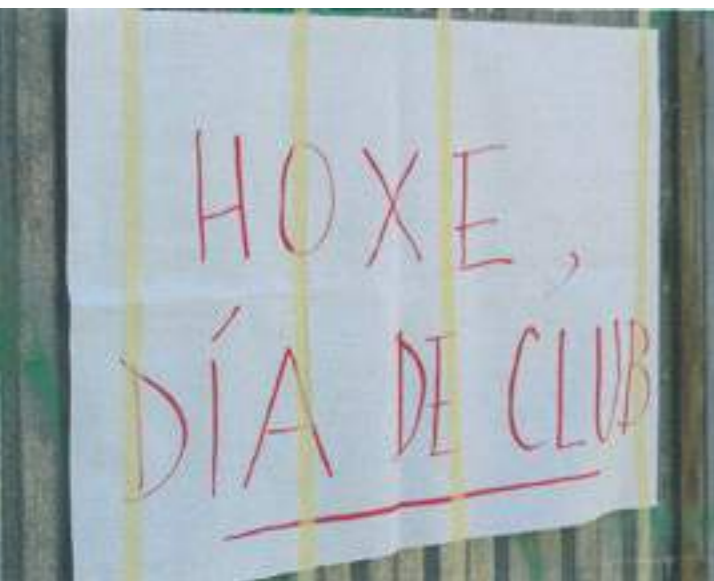 HOXE,
DÍA DE CLUB